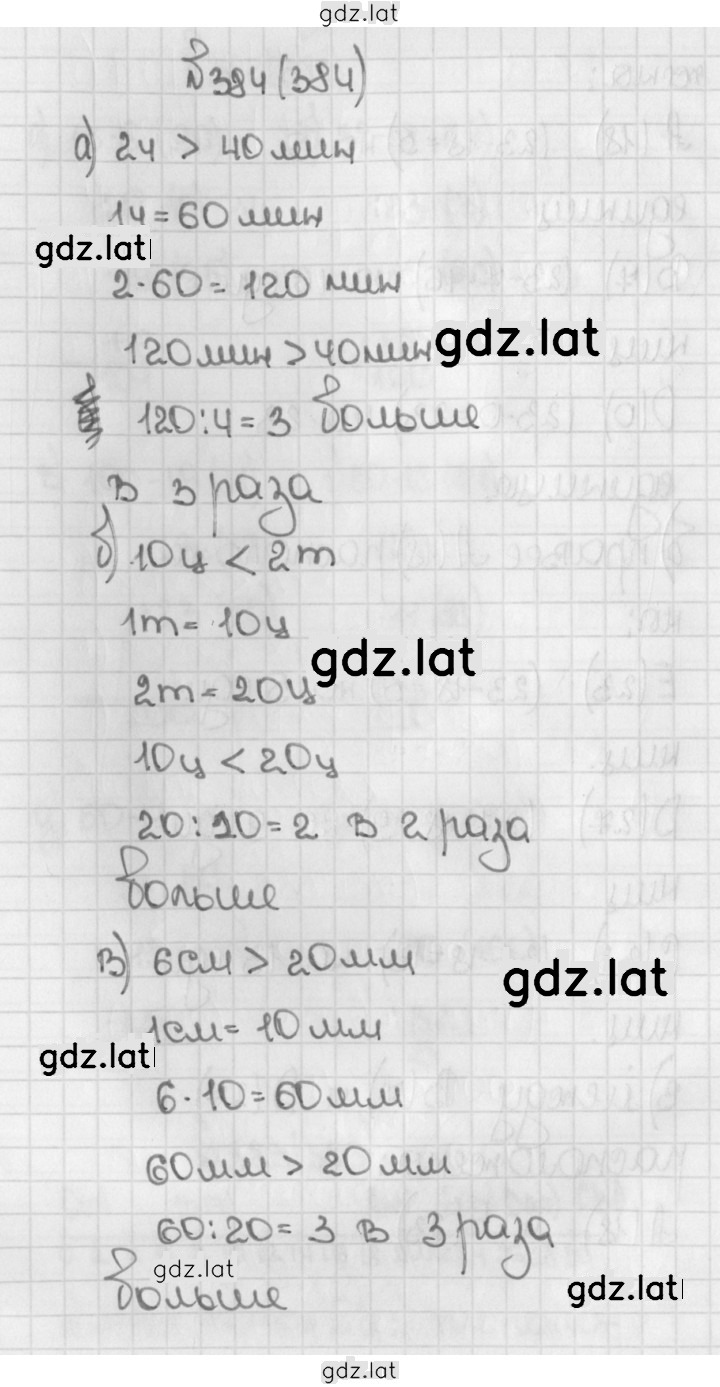 gdz.lat
№384(384)
а) 2ч > 40мин
1ч=60мин
gdz.lat
2·60=120 мин
120мин>40мин gdz.lat
120:4=3 больше
в 3 раза
б) 10ц < 2т
1т= 10ц
gdz.lat
2т=20ц
10ц < 20ц
20:10=2 в 2 раза
больше
в) 6см > 20мм
gdz.lat
1см= 10мм
gdz.lat
6·10=60мм
60мм > 20мм
60:20= 3 в 3 раза
gdz.lat
больше
gdz.lat
gdz.lat